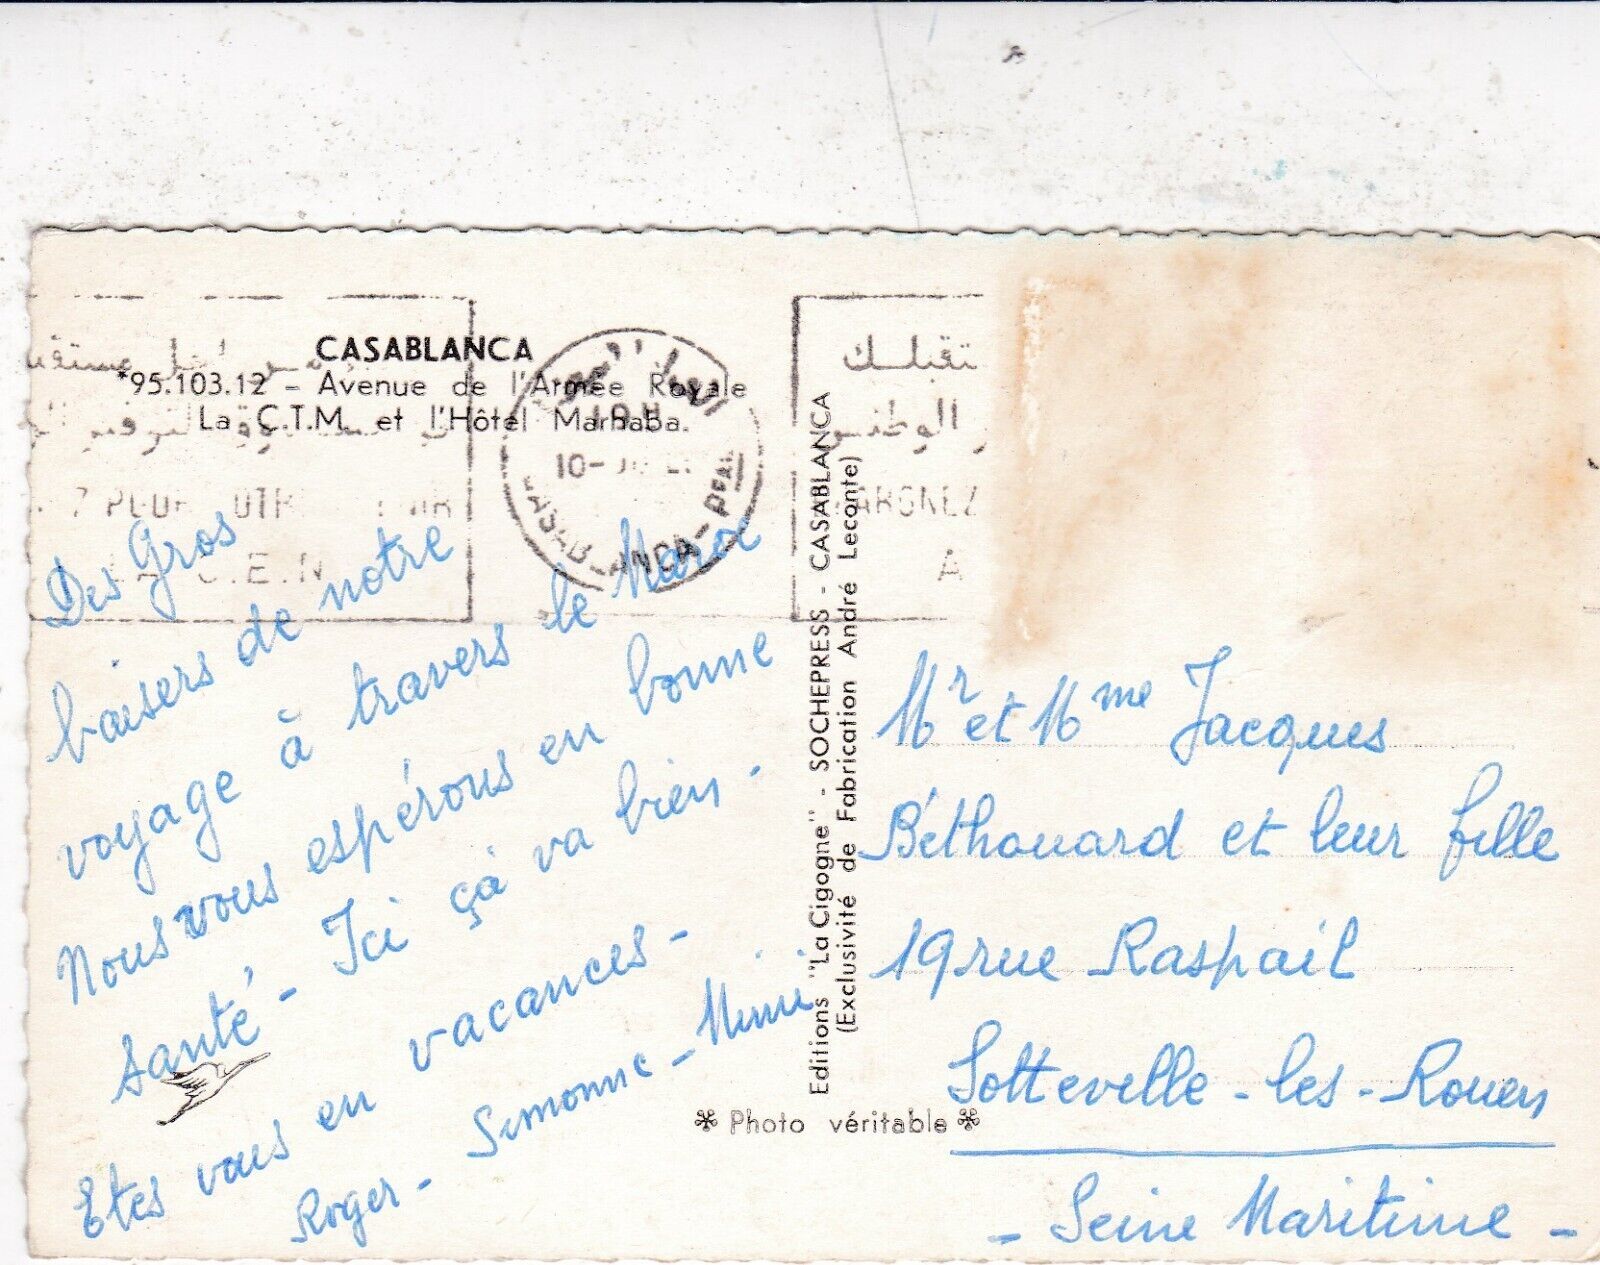 CASABLANCA
*95.103.12 - Avenue de l'Armée Royale
La C.T.M. et l'Hôtel Marhaba.
تقبلك
الوطني
POUR
C.E.N
19H
10-
CASABLANCA-Ppal
ARGNEZ
A
Des Gros
baisers de notre
voyage à travers le Maroc
Nous vous espérons en bonne
santé - Ici çà va bien -
Etes vous en vacances -
Roger - Simonne - Mimi
Editions "La Cigogne" - SOCHEPRESS - CASABLANCA
(Exclusivité de Fabrication André Leconte)
* Photo véritable *
Mr et Mme Jacques
Béthouard et leur fille
19 rue Raspail
Sotteville-les-Rouen
- Seine Maritime -